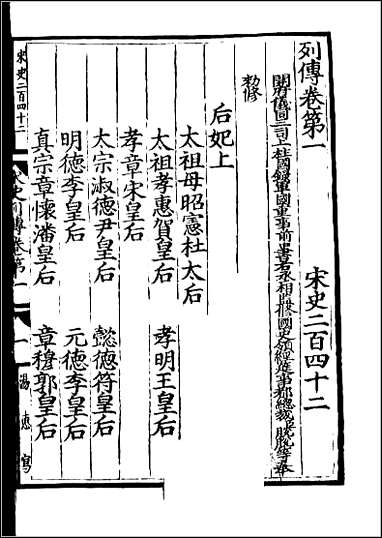 列傳卷第一　宋史二百四十二
開府儀同三司上柱國錄軍國重事前中書右丞相監修國史領經筵事都總裁脫脫等奉
勑修
后妃上
太祖母昭憲杜太后
太祖孝惠賀皇后　孝明王皇后
孝章宋皇后
太宗淑德尹皇后　懿德符皇后
明德李皇后　元德李皇后
真宗章懷潘皇后　章穆郭皇后
宋史二百四十二
史列傳卷第一
一